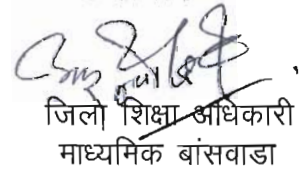 जिला शिक्षा अधिकारी
माध्यमिक बांसवाडा